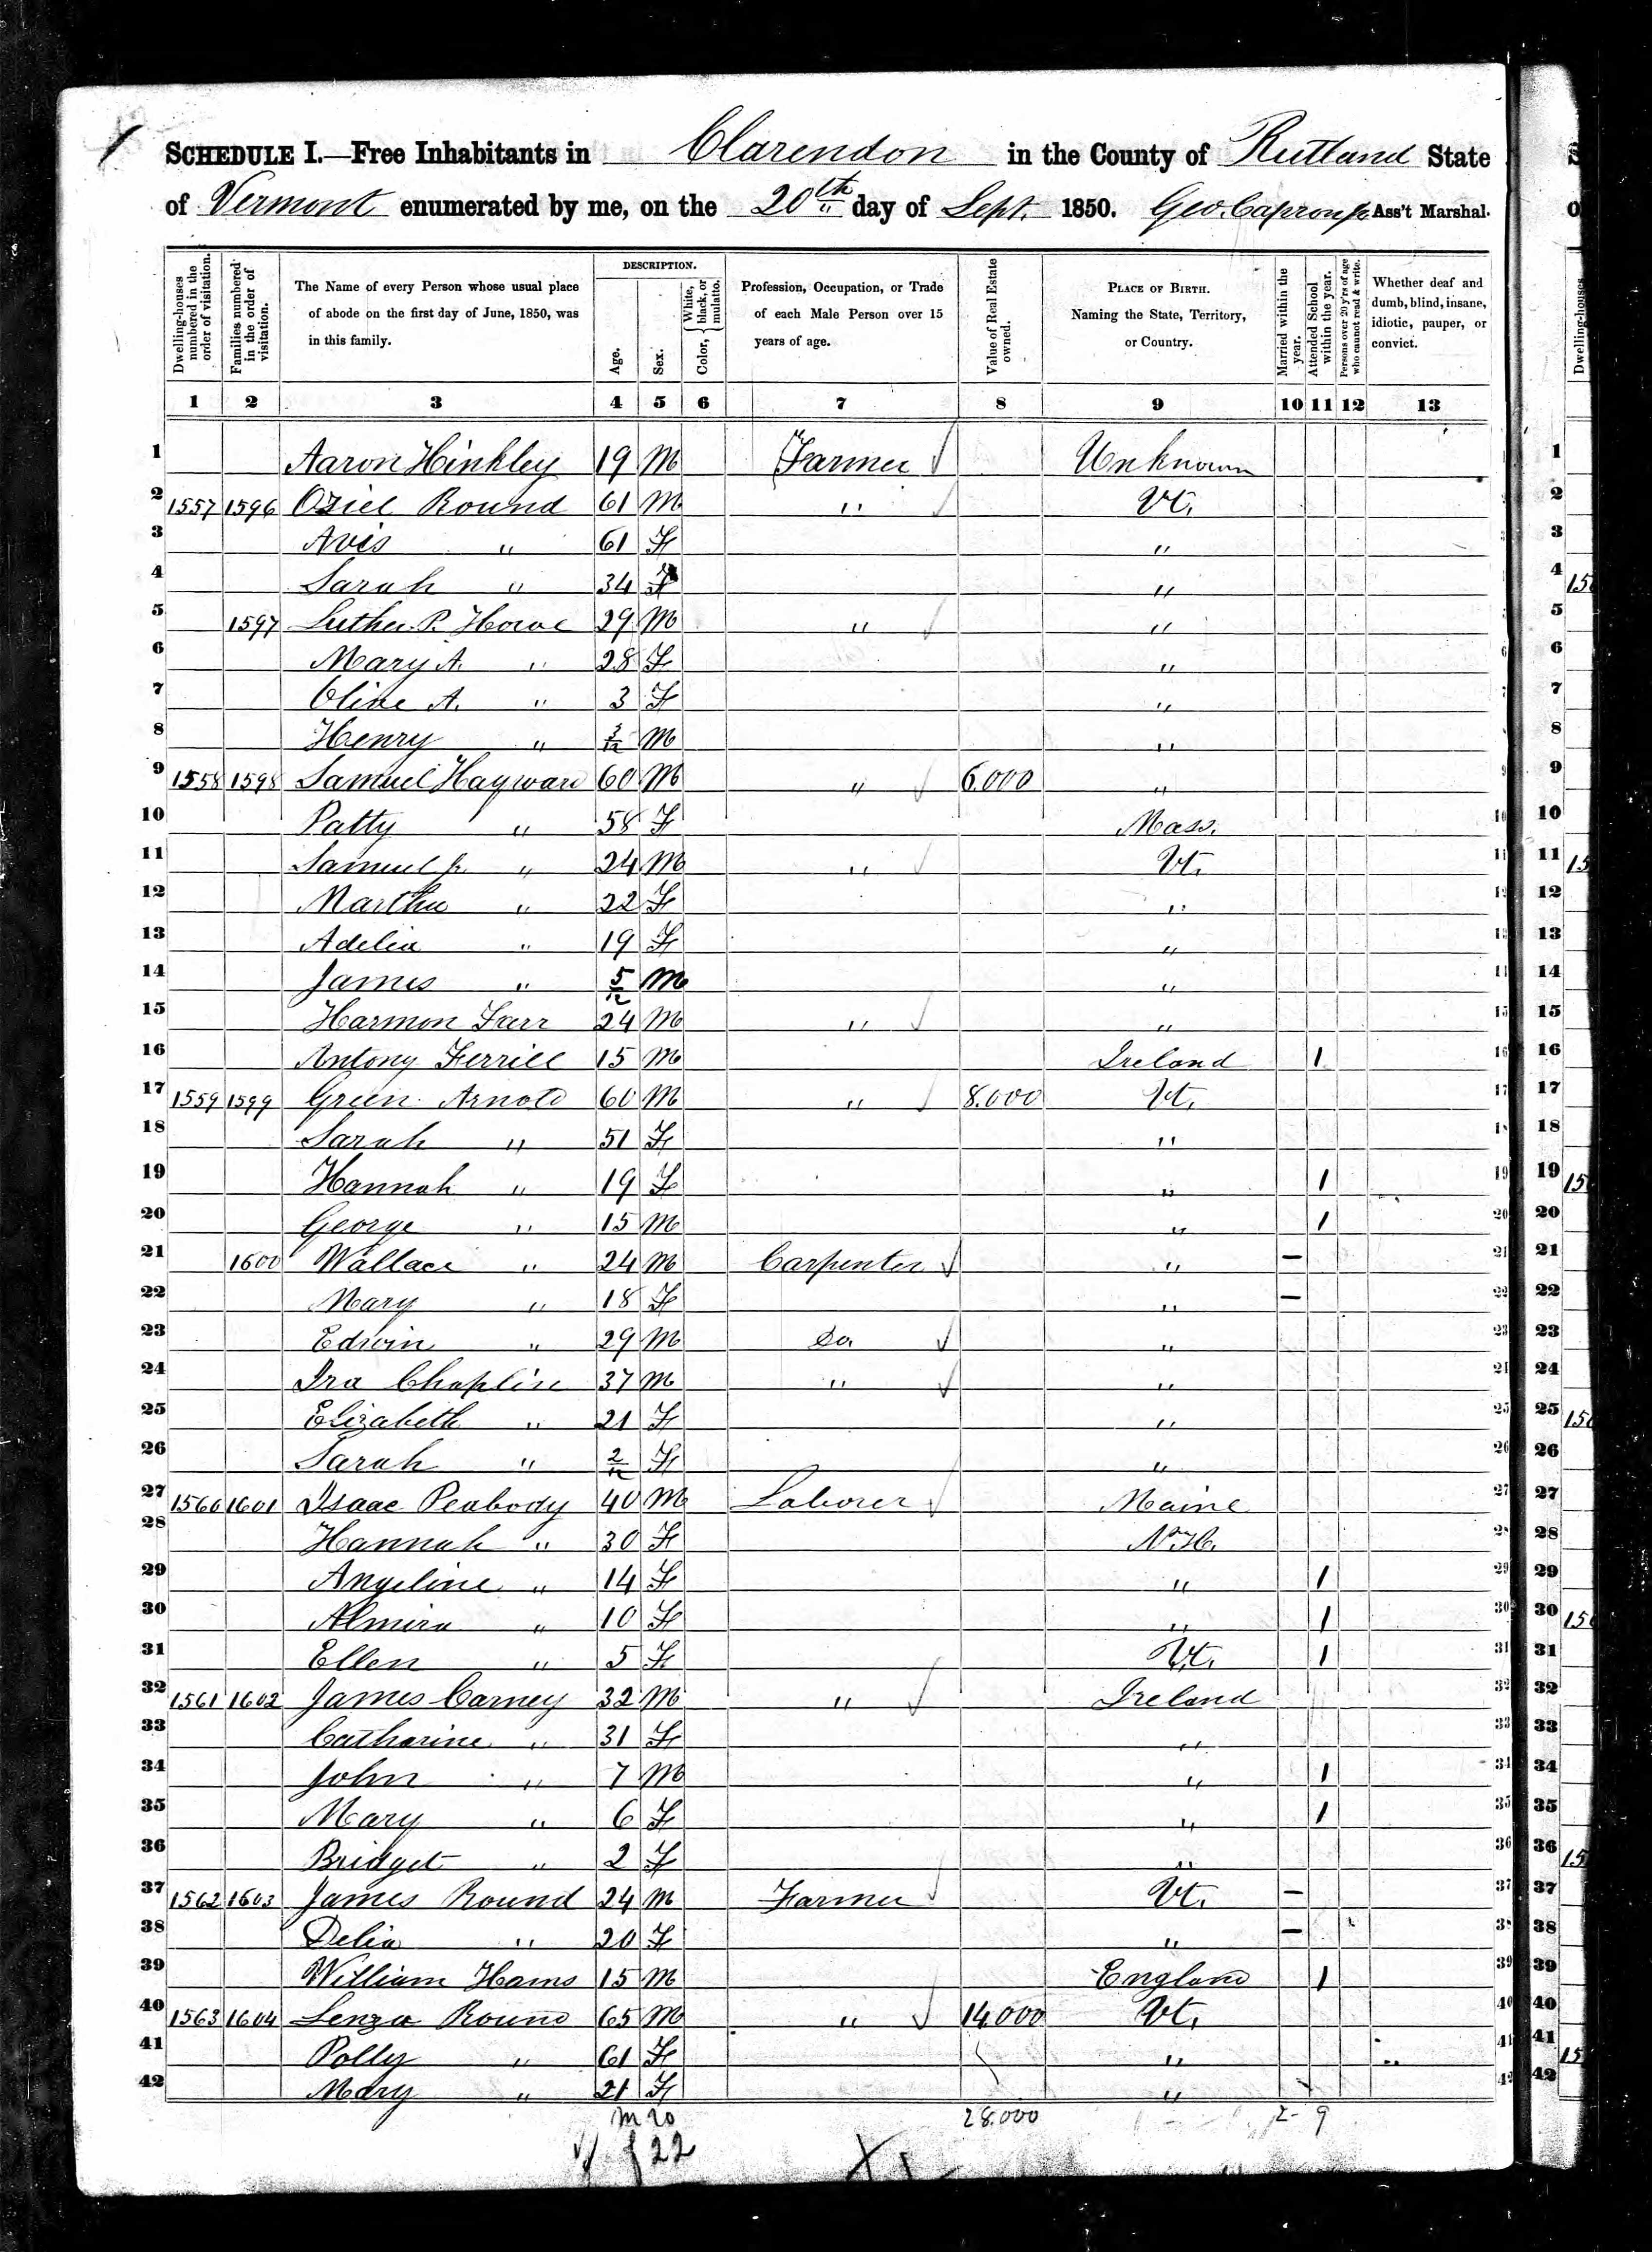 SCHEDULE I.—Free Inhabitants in Clarendon in the County of Rutland State
of Vermont enumerated by me, on the 20th day of Sept. 1850. Geo. Capron Jr. Ass't Marshal.
Dwelling-houses numbered in the order of visitation.
Families numbered in the order of visitation.
The Name of every Person whose usual place of abode on the first day of June, 1850, was in this family.
DESCRIPTION.
Age.
Sex.
Color, { White, black, or mulatto.
Profession, Occupation, or Trade of each Male Person over 15 years of age.
Value of Real Estate owned.
PLACE OF BIRTH. Naming the State, Territory, or Country.
Married within the year.
Attended School within the year.
Persons over 20 y'rs of age who cannot read & write.
Whether deaf and dumb, blind, insane, idiotic, pauper, or convict.
1 2 3 4 5 6 7 8 9 10 11 12 13
1 Aaron Hinkley 19 M Farmer Unknown
2 1557 1596 Oziel Round 61 M " Vt.
3 Avis " 61 F "
4 Sarah " 34 F "
5 1597 Luther P. Howe 29 M " "
6 Mary A. " 28 F "
7 Olive A. " 3 F "
8 Henry " 3/12 M "
9 1558 1598 Samuel Hayward 60 M " 6.000 "
10 Patty " 58 F Mass.
11 Samuel Jr. " 24 M " Vt.
12 Martha " 22 F "
13 Adelia " 19 F "
14 James " 5/12 M "
15 Harmon Farr 24 M " "
16 Antony Ferrill 15 M Ireland 1
17 1559 1599 Green Arnold 60 M " 8.000 Vt.
18 Sarah " 51 F "
19 Hannah " 19 F " 1
20 George " 15 M " 1
21 1600 Wallace " 24 M Carpenter " –
22 Mary " 18 F " –
23 Edwin " 29 M Do. "
24 Ira Chaplin 37 M " "
25 Elizabeth " 21 F "
26 Sarah " 2/12 F "
27 1560 1601 Isaac Peabody 40 M Laborer Maine
28 Hannah " 30 F N.H.
29 Angeline " 14 F " 1
30 Almira " 10 F " 1
31 Ellen " 5 F Vt. 1
32 1561 1602 James Carney 32 M " Ireland
33 Catharine " 31 F "
34 John " 7 M " 1
35 Mary " 6 F " 1
36 Bridget " 2 F "
37 1562 1603 James Round 24 M Farmer Vt. –
38 Delia " 20 F " –
39 William Hams 15 M England 1
40 1563 1604 Lenza Round 65 M " 14.000 Vt.
41 Polly " 61 F "
42 Mary " 21 F "
m 20 28.000 2- 9
f 22